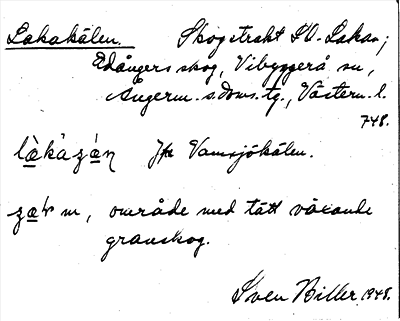 Lakakälen. Skogstrakt SV. Lakan;
Edångers skog, Vibyggerå sn,
Ångerm. s. doms. tg., Västern. l.
748.
Jfr Vamsjökälen.
m, område med tätt växande
granskog.
Sven Biller 1948.